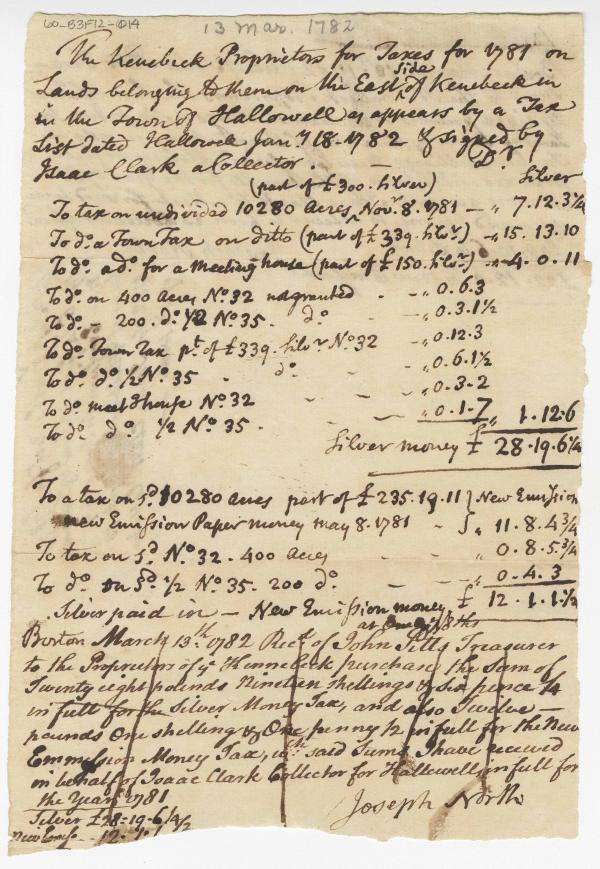 60-B3F12-014
13 Mar. 1782
The Kenebeck Proprietors for Taxes for 1781 on
Lands belonging to them on the East side of Kenebeck in
in the Town of Hallowell as appears by a Tax
List dated Hallowell Jany 18. 1782 & signed by
Isaac Clark a Collector. Dr
(part of £300. Silver) Silver
To tax on undivided 10280 Acres, Novr 8. 1781 — „ 7.12.3 1/4
To do a Town Tax on ditto (part of £339. Silvr) — „ 15.13.10
To do a do for a meeting house (part of £150. Silvr) — „ 4.0.11
To do on 400 Acres No. 32 not granted - - „ 0.6.3
To do - 200. do 1/2 No. 35. do - „ 0.3.1 1/2
To do Town Tax pt of £339. Silvr No. 32 - „ 0.12.3
To do do 1/2 No. 35 - do - - „ 0.6.1 1/2
To do meetg house No. 32 - - - „ 0.3-2
To do do 1/2 No. 35 - - - „ 0.1.7 1.12.6
Silver money £ 28.19.6 1/4
To a tax on sd. 10280 acres part of £235.19.11 } New Emission
new Emission Paper money may 8. 1781 - } „ 11.8.4 3/4
To tax on sd No. 32. 400 acres - - „ 0.8.5. 3/4
To do on sd 1/2 No. 35. 200 do. - - „ 0.4.3
Silver paid in — New Emission money, £ 12.1.1 1/2
at 8ths
Boston March 13th 1782 Recd of John Pitts Treasurer
to the Proprietors of ye Kennebeck purchase the Sum of
Twenty eight pounds Nineteen shillings & six pence 1/4
in full for the Silver Money Tax, and also Twelve —
pounds One shilling & One penny 1/2 in full for the New
Emmission Money Tax, wch said Sums I have received
in behalf of Isaac Clark Collector for Hallowell in full for
the Year 1781
Joseph North
Silver £28-19-6 1/4
New Emisn 12.1.1 1/2